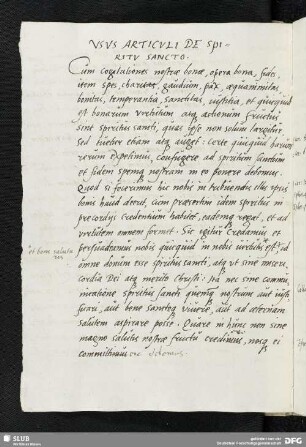 VSVS ARTICVLI DE SPI-
RITV SANCTO.
Cum cogitationes nostræ bonæ, opera bona, fides,
item spes, charitas, gaudium, pax, æquanimitas
bonitas, temperantia, sanctitas, iustitia, et quicquid
est bonarum virtutum atq actionum fructus
sint spiritus sancti, quas ipse non solum largitur
sed etiam atq auget: certe quicquid harum
rerum expetimus, confugere ad spiritum sanctum
et fidem spemq nostram in eo ponere debemus.
Quod si fecerimus hic nobis in illis spes
bonis haud deerit, cum præsertim idem spiritus in
precordijs credentium habitet, eademq regat, et ad
virtutem omnem formet. Sic igitur credamus et
persuadeamus nobis quicquid in nobis virtutis est, id
omne donum esse spiritus sancti, atq ut sine miseri
cordia Dei atq merito Christi: ita nec sine commu
nicatione spiritus sancti quenq nostrum aut iusti
ficari, aut bene sancteq vivere, aut ad æternam
salutem aspirare posse. Quare in hunc non sine
magno salutis nostræ fructu credimus, nosq ei
committimus
SLUB
DFG